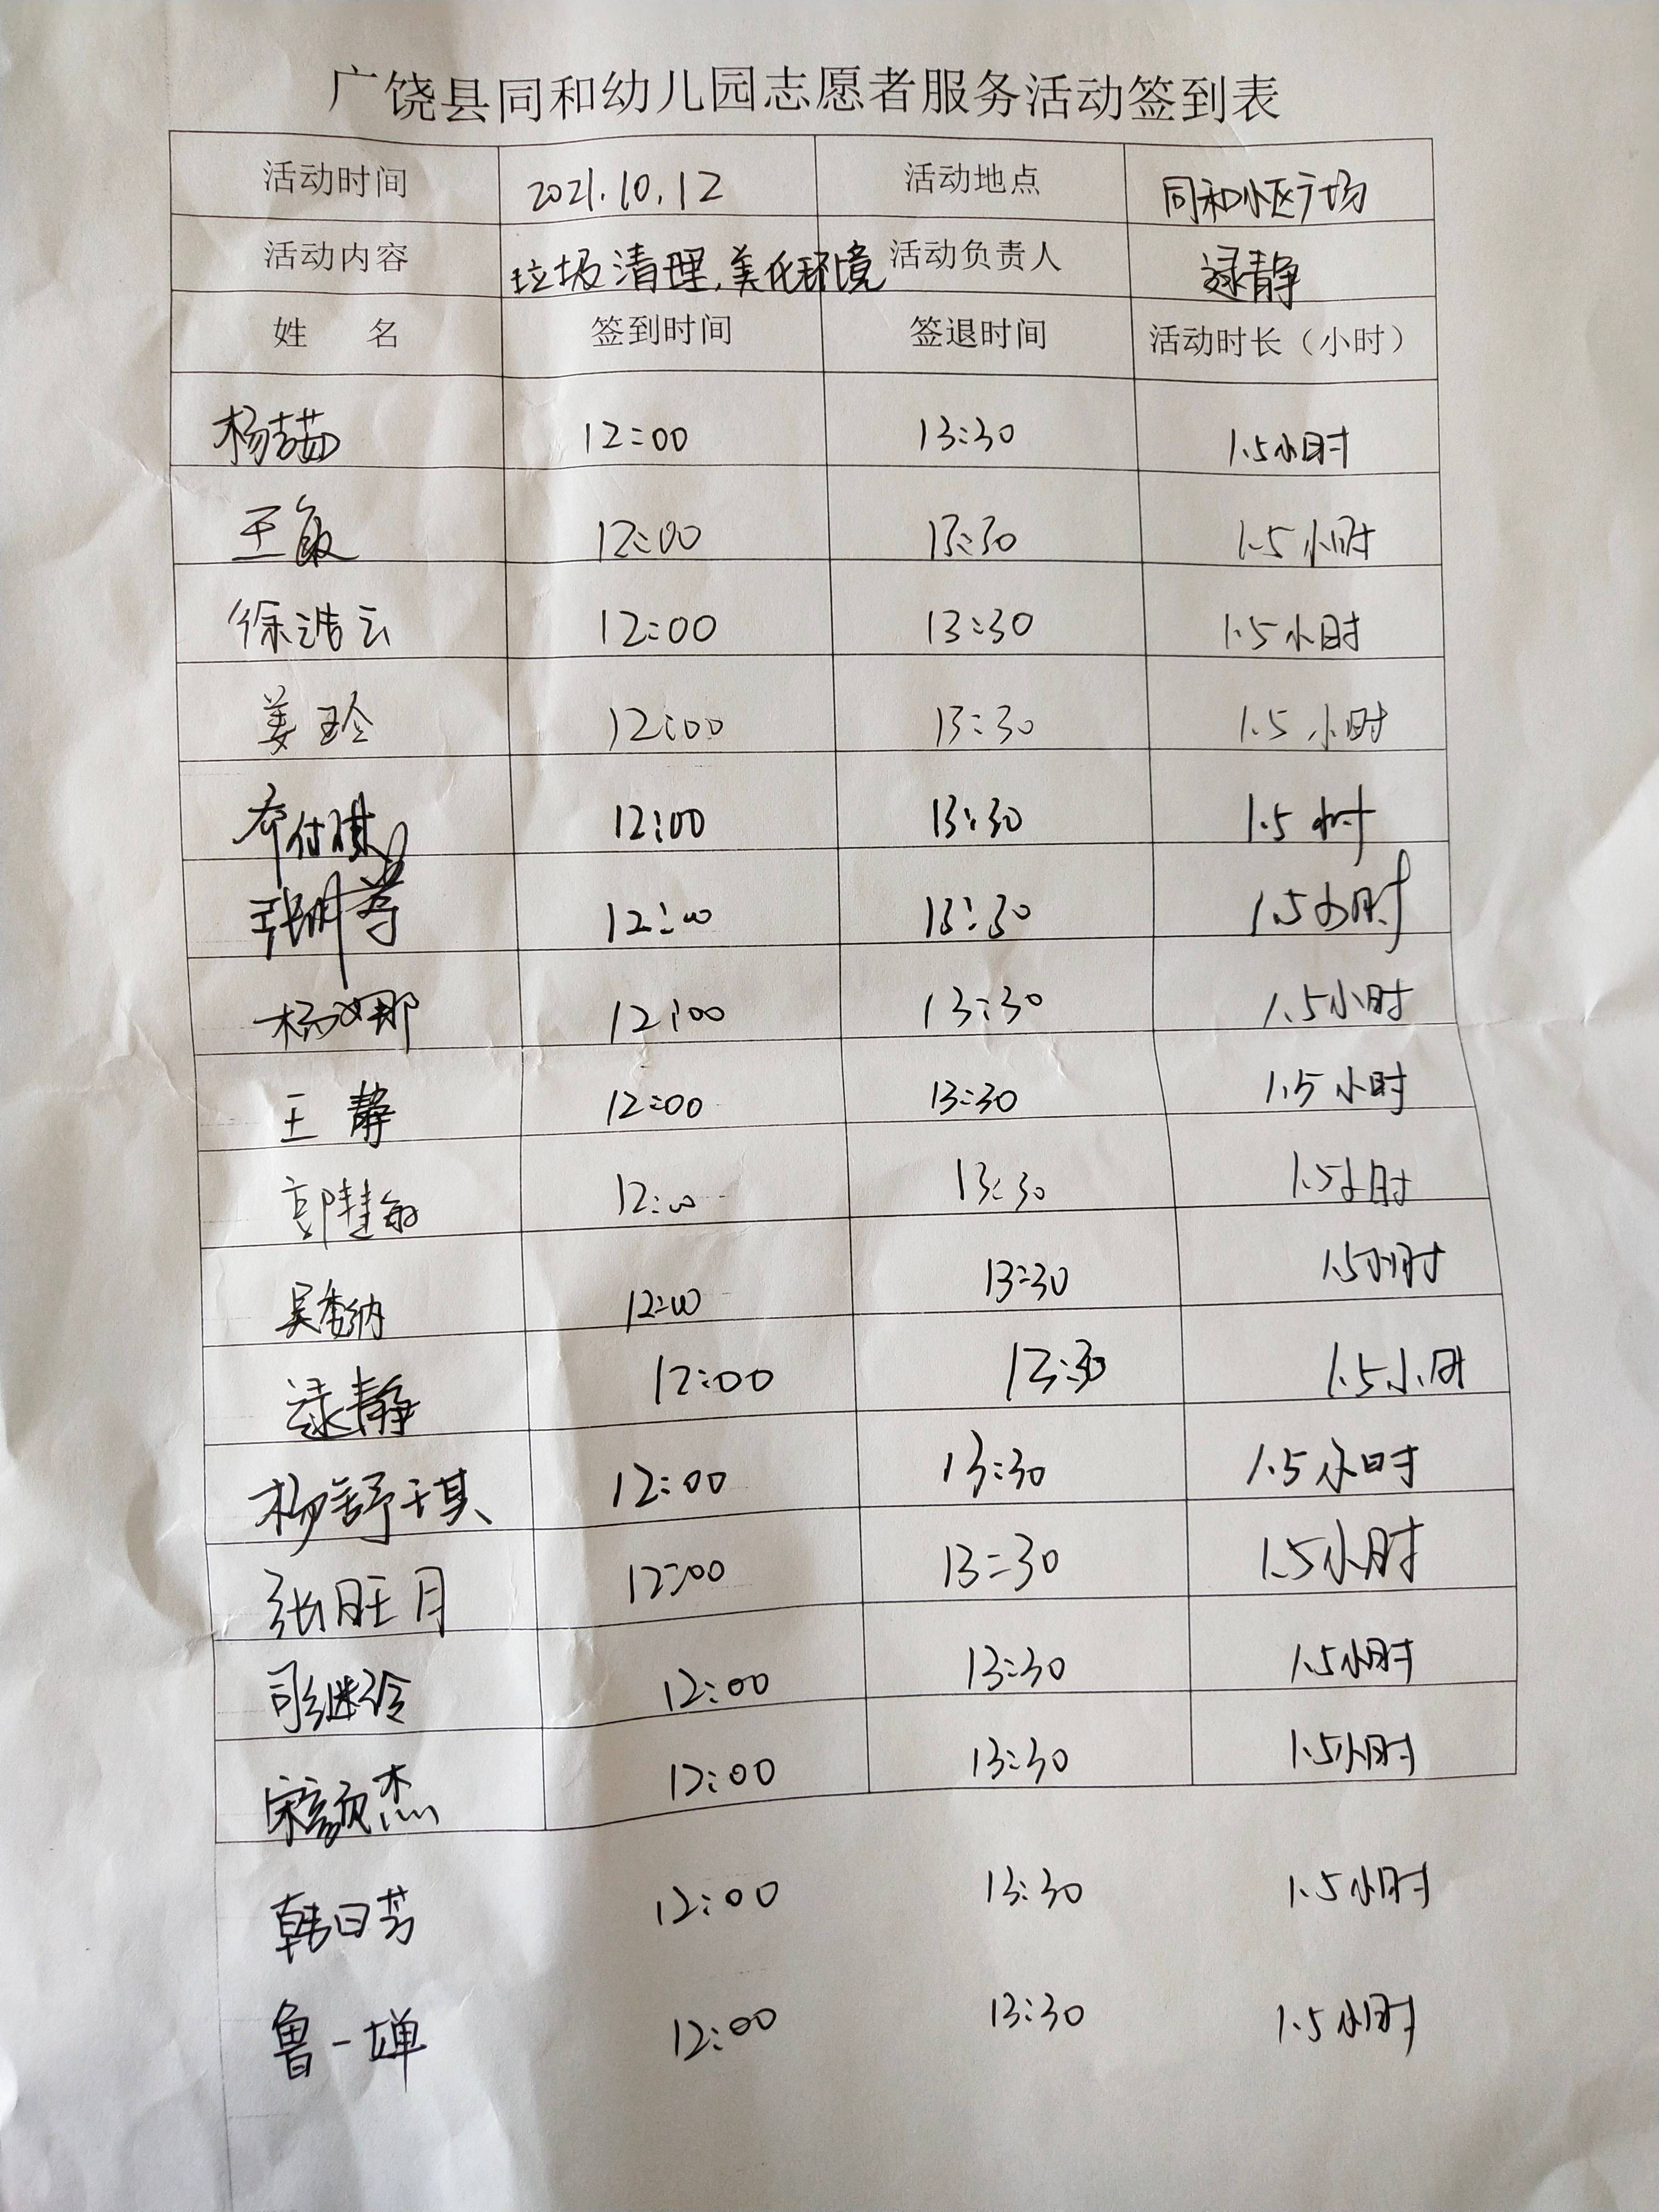 广饶县同和幼儿园志愿者服务活动签到表
活动时间 2021.10.12 活动地点 同和小区广场
活动内容 垃圾清理,美化环境 活动负责人 逯静
姓 名 签到时间 签退时间 活动时长（小时）
杨喆茹 12:00 13:30 1.5小时
王敏 12:00 13:30 1.5小时
徐浩云 12:00 13:30 1.5小时
姜玲 12:00 13:30 1.5小时
乔付琪 12:00 13:30 1.5小时
张明芳 12:00 13:30 1.5小时
杨娜 12:00 13:30 1.5小时
王静 12:00 13:30 1.5小时
郭慧敏 12:00 13:30 1.5小时
吴秀纳 12:00 13:30 1.5小时
逯静 12:00 13:30 1.5小时
杨舒琪 12:00 13:30 1.5小时
张旺月 12:00 13:30 1.5小时
司继玲 12:00 13:30 1.5小时
宋颜杰 12:00 13:30 1.5小时
韩曰芳 12:00 13:30 1.5小时
鲁一婵 12:00 13:30 1.5小时